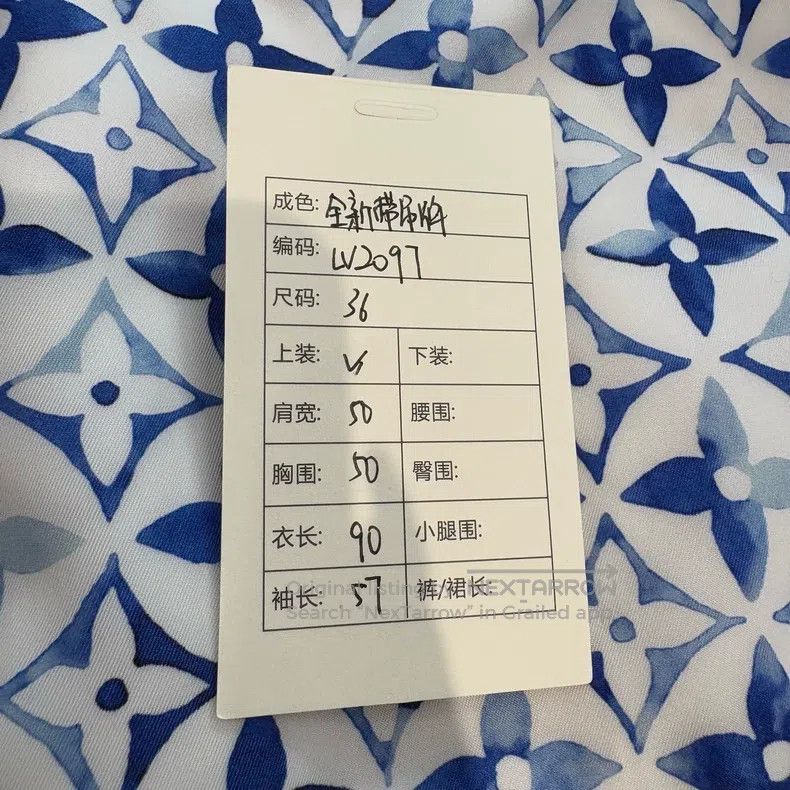 成色: 全新带吊牌
编码: LV2097
尺码: 36
上装: √ 下装:
肩宽: 50 腰围:
胸围: 50 臀围:
衣长: 90 小腿围:
袖长: 57 裤/裙长:
Original listing by NEXTARROW
Search "NexTarrow" in Grailed app